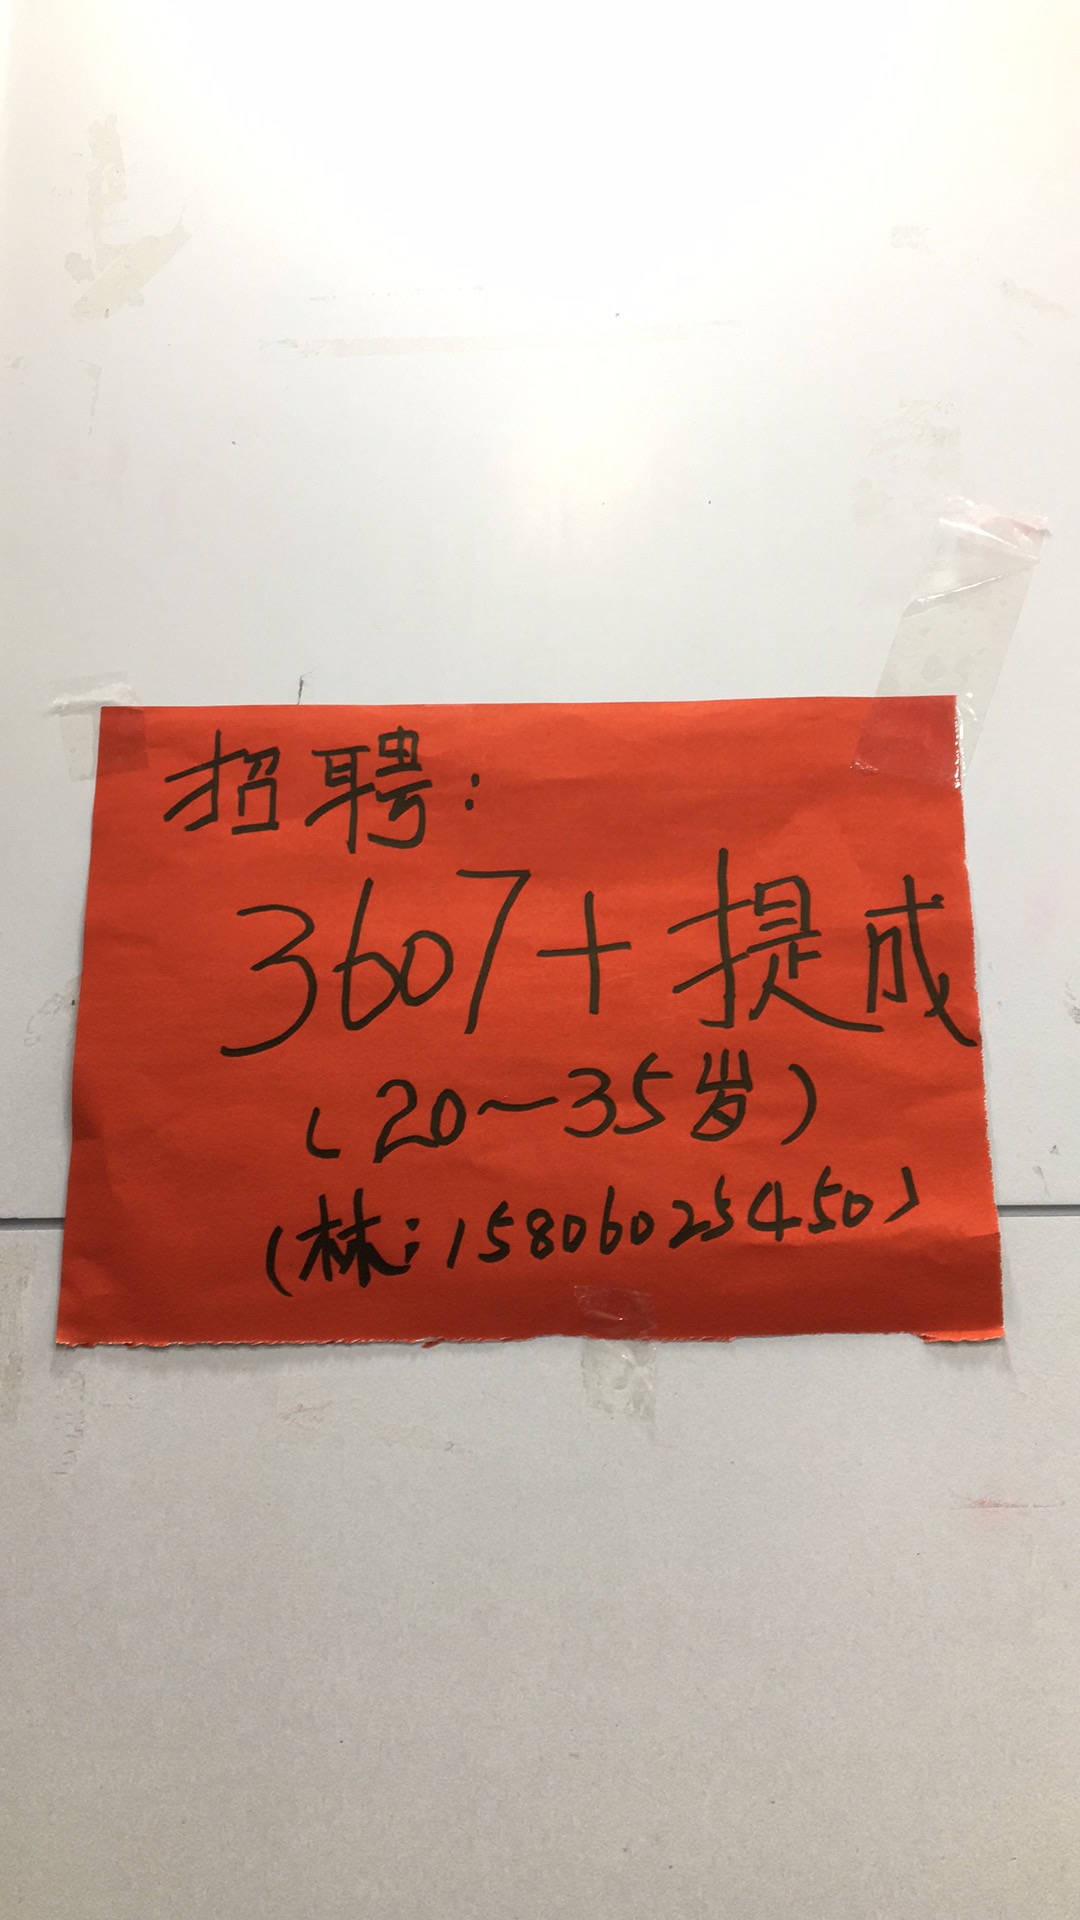 招聘:
3607+提成
(20~35岁)
(林:15806025450)